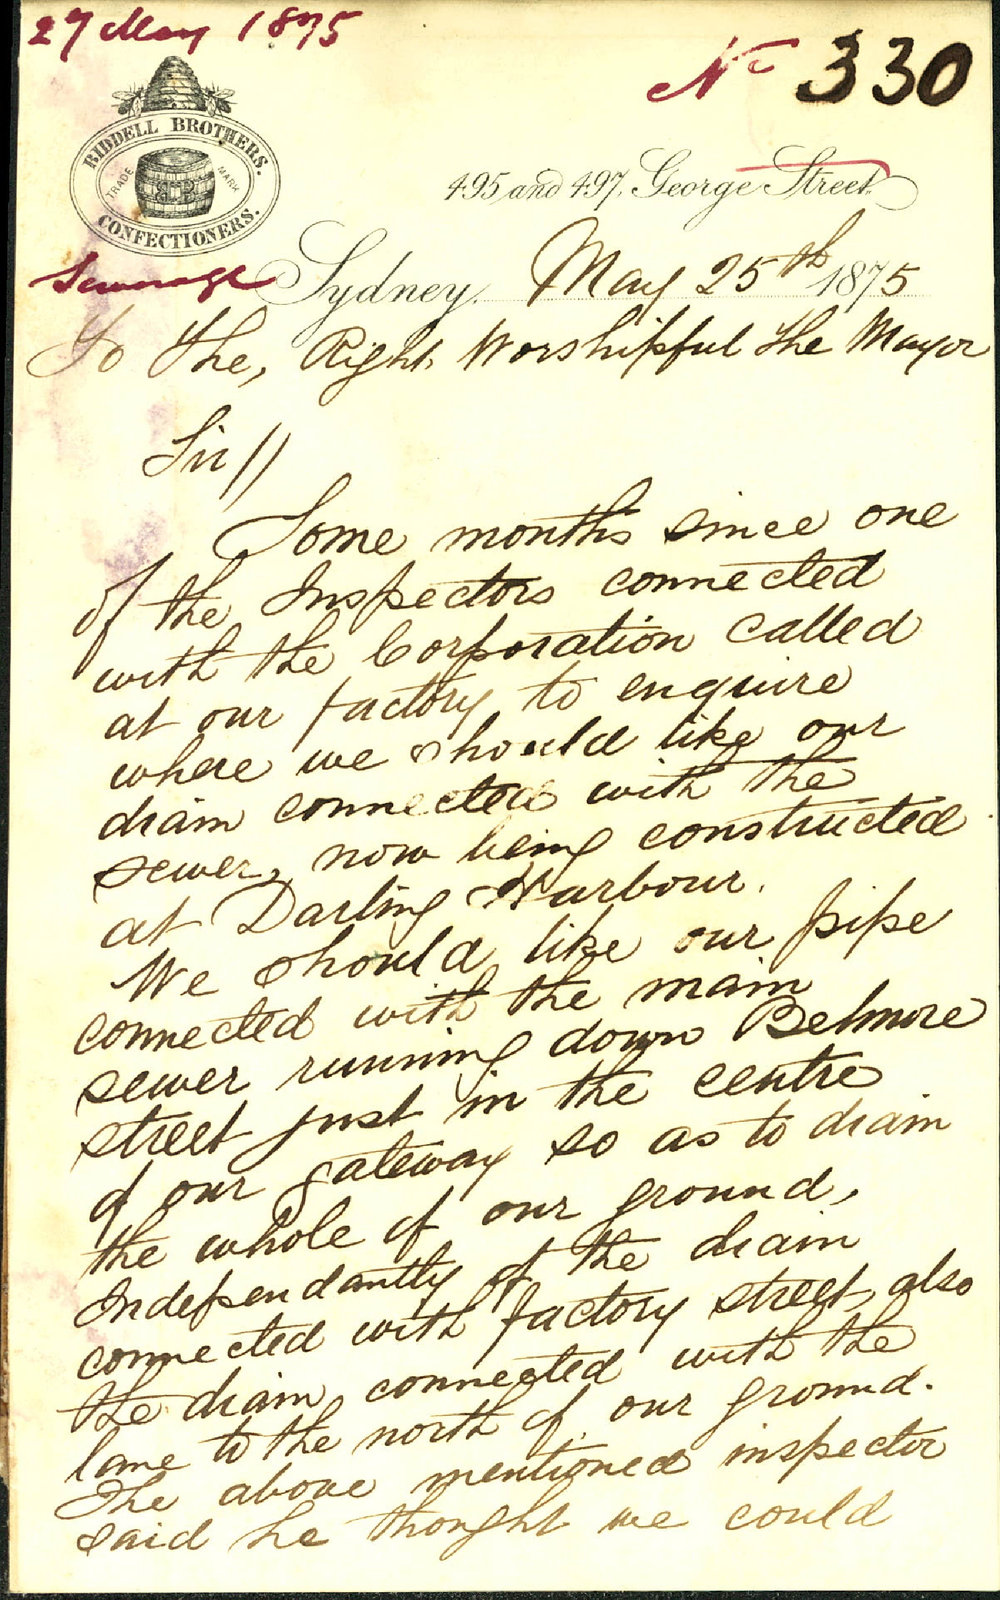 27 May 1875
No 330
RIDDELL BROTHERS.
TRADE MARK
CONFECTIONERS.
495 and 497, George Street
Sewerage
Sydney, May 25th 1875
To the, Right Worshipful the Mayor
Sir //
Some months since one
of the Inspectors connected
with the Corporation called
at our factory to enquire
where we should like our
drain connected with the
sewer, now being constructed
at Darling Harbour.
We should like our pipe
connected with the main
sewer running down Belmore
street just in the centre
of our gateway so as to drain
the whole of our ground,
Independantly of the drain
connected with factory street, also
the drain connected with the
lane to the north of our ground.
The above mentioned inspector
said he thought we could